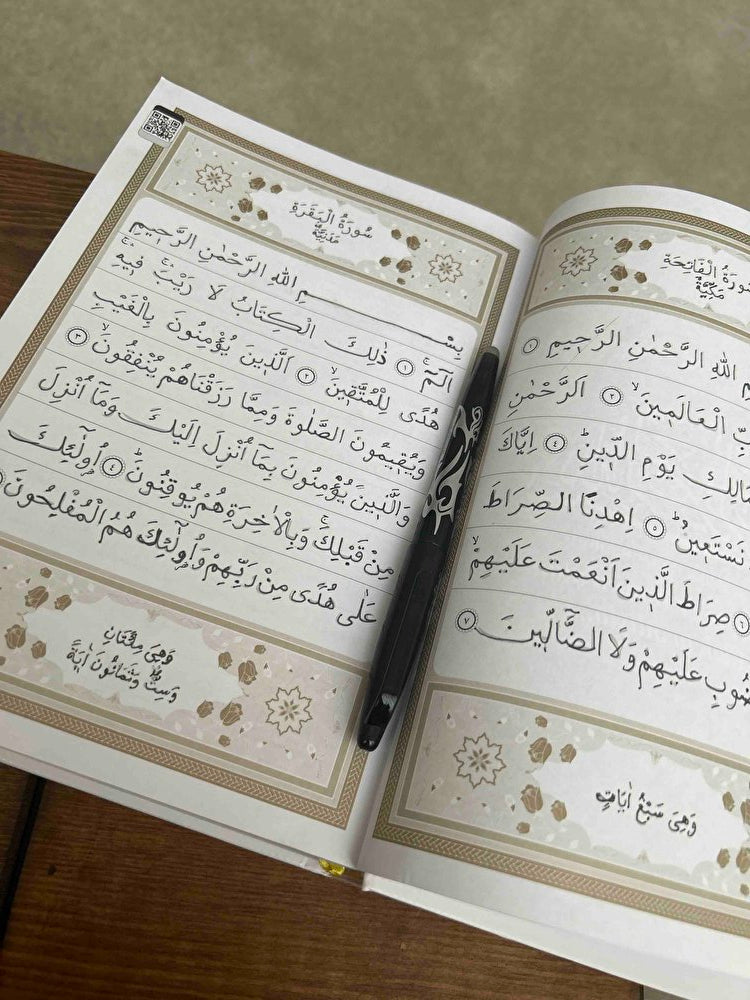 الْفَاتِحَةِ
مَكِّيَّةٌ
اللهِ الرَّحْمٰنِ الرَّحِيمِ ١
الْعَالَمِينَۙ ٢ اَلرَّحْمٰنِ
مَالِكِ يَوْمِ الدِّينِۜ ٤ اِيَّاكَ
نَسْتَعِينُۜ ٥ اِهْدِنَا الصِّرَاطَ
٦ صِرَاطَ الَّذِينَ اَنْعَمْتَ عَلَيْهِمْۙ
عَلَيْهِمْ وَلَا الضَّالِّينَ ٧
وَهِيَ سَبْعُ اٰيَاتٍ
سُورَةُ الْبَقَرَةِ
مَدَنِيَّةٌ
بِسْمِ اللهِ الرَّحْمٰنِ الرَّحِيمِ
الٓمٓۚ ١ ذٰلِكَ الْكِتَابُ لَا رَيْبَۚ فِيهِۚ
هُدًى لِلْمُتَّقِينَۙ ٢ اَلَّذِينَ يُؤْمِنُونَ بِالْغَيْبِ
وَيُقِيمُونَ الصَّلٰوةَ وَمِمَّا رَزَقْنَاهُمْ يُنْفِقُونَۙ ٣
وَالَّذِينَ يُؤْمِنُونَ بِمَٓا اُنْزِلَ اِلَيْكَ وَمَٓا اُنْزِلَ
مِنْ قَبْلِكَۚ وَبِالْاٰخِرَةِ هُمْ يُوقِنُونَۜ ٤ اُو۬لٰٓئِكَ
عَلٰى هُدًى مِنْ رَبِّهِمْ وَاُو۬لٰٓئِكَ هُمُ الْمُفْلِحُونَ
وَهِيَ مِئَتَانِ
وَسِتٌّ وَثَمَانُونَ اٰيَةً